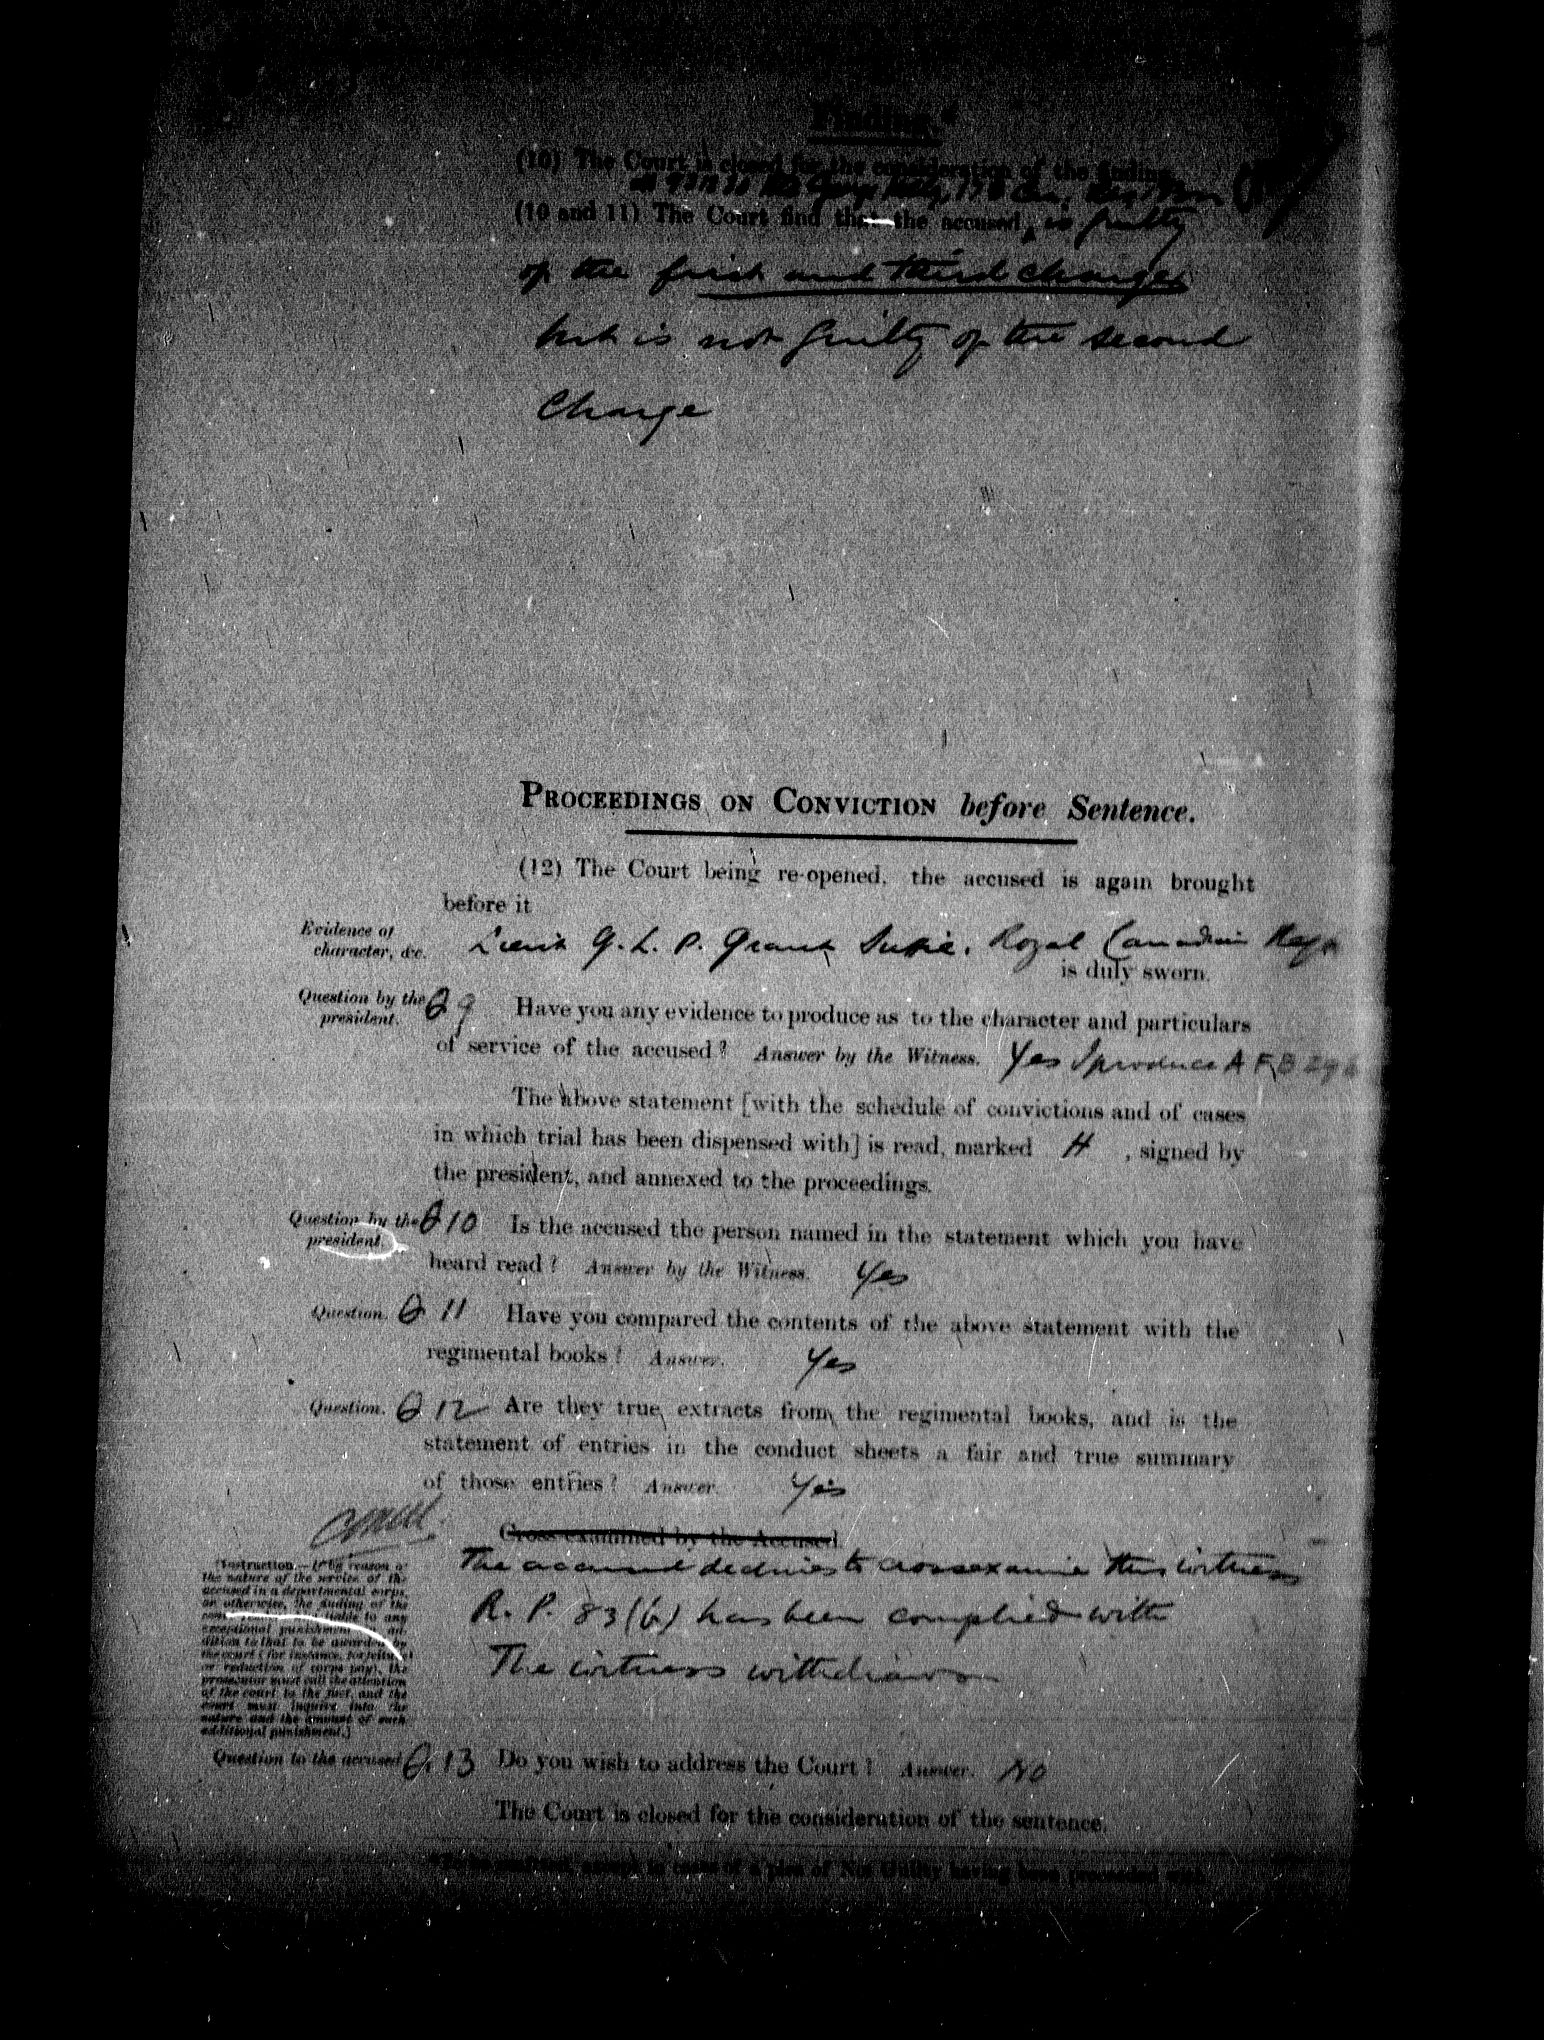 Finding.*
(10) The Court is closed for the consideration of the finding.
(10 and 11) The Court find that the accused, is guilty
of the first and third charges
but is not guilty of the second
Charge
PROCEEDINGS ON CONVICTION before Sentence.
(12) The Court being re-opened, the accused is again brought
before it
Evidence of
character, &c.
Lieut G. L. P. Grant Suttie. Royal Canadian Regt
is duly sworn.
Question by the
president.
Q 9 Have you any evidence to produce as to the character and particulars
of service of the accused? Answer by the Witness. Yes I produce A F B
The above statement [with the schedule of convictions and of cases
in which trial has been dispensed with] is read, marked H , signed by
the president, and annexed to the proceedings.
Question by the
president.
Q 10 Is the accused the person named in the statement which you have
heard read? Answer by the Witness. Yes
Question. Q 11 Have you compared the contents of the above statement with the
regimental books? Answer. Yes
Question. Q 12 Are they true extracts from the regimental books, and is the
statement of entries in the conduct sheets a fair and true summary
of those entries? Answer. Yes
Cross-examined by the Accused.
The accused declines to cross examine this witness
R. P. 83 (b) has been complied with
The witness withdraws
[Instruction.—If by reason of
the nature of the service of the
accused in a departmental corps,
or otherwise, the finding of the
court renders him liable to any
exceptional punishment in ad-
dition to that to be awarded by
the court (for instance, forfeiture
or reduction of corps pay), the
prosecutor must call the attention
of the court to the fact, and the
court must inquire into the
nature and the amount of such
additional punishment.]
Question to the accused. Q. 13 Do you wish to address the Court? Answer. No
The Court is closed for the consideration of the sentence.